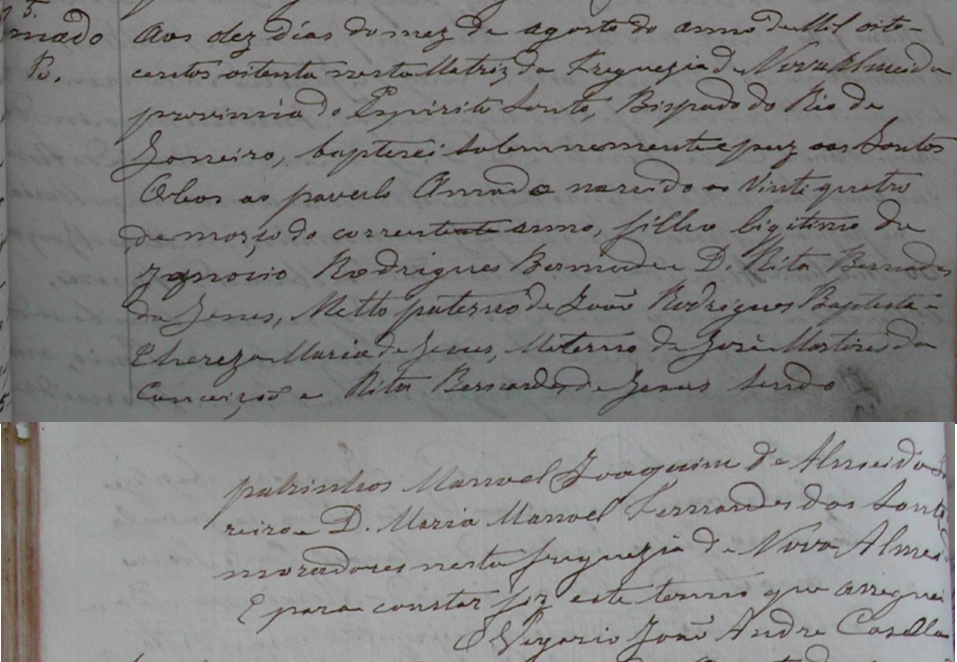 mado
B.
Aos dez dias do mez de agosto do anno de Mil oito-
centos oitenta nesta Matriz da Freguezia de Nova Almeida
provincia do Espirito Santo, Bispado do Rio de
Janeiro, baptisei solemnemente e puz os Santos
Oleos ao parvulo Amado nascido ao Vinte quatro
de março do corrente anno, filho ligitimo de
Ignacio Rodrigues Bermude e D. Rita Bernardes
de Jesus, Netto paterno de João Rodrigues Baptista e
Thereza Maria de Jesus, Materno de José Martires da
Conceição e Rita Bernardes de Jesus sendo
padrinhos Manoel Joaquim de Almeida
reiro e D. Maria Manoel Fernandes dos Santos
moradores nesta freguezia de Nova Almei
E para constar fiz este termo que assignei
O Vigario João Andre Casella